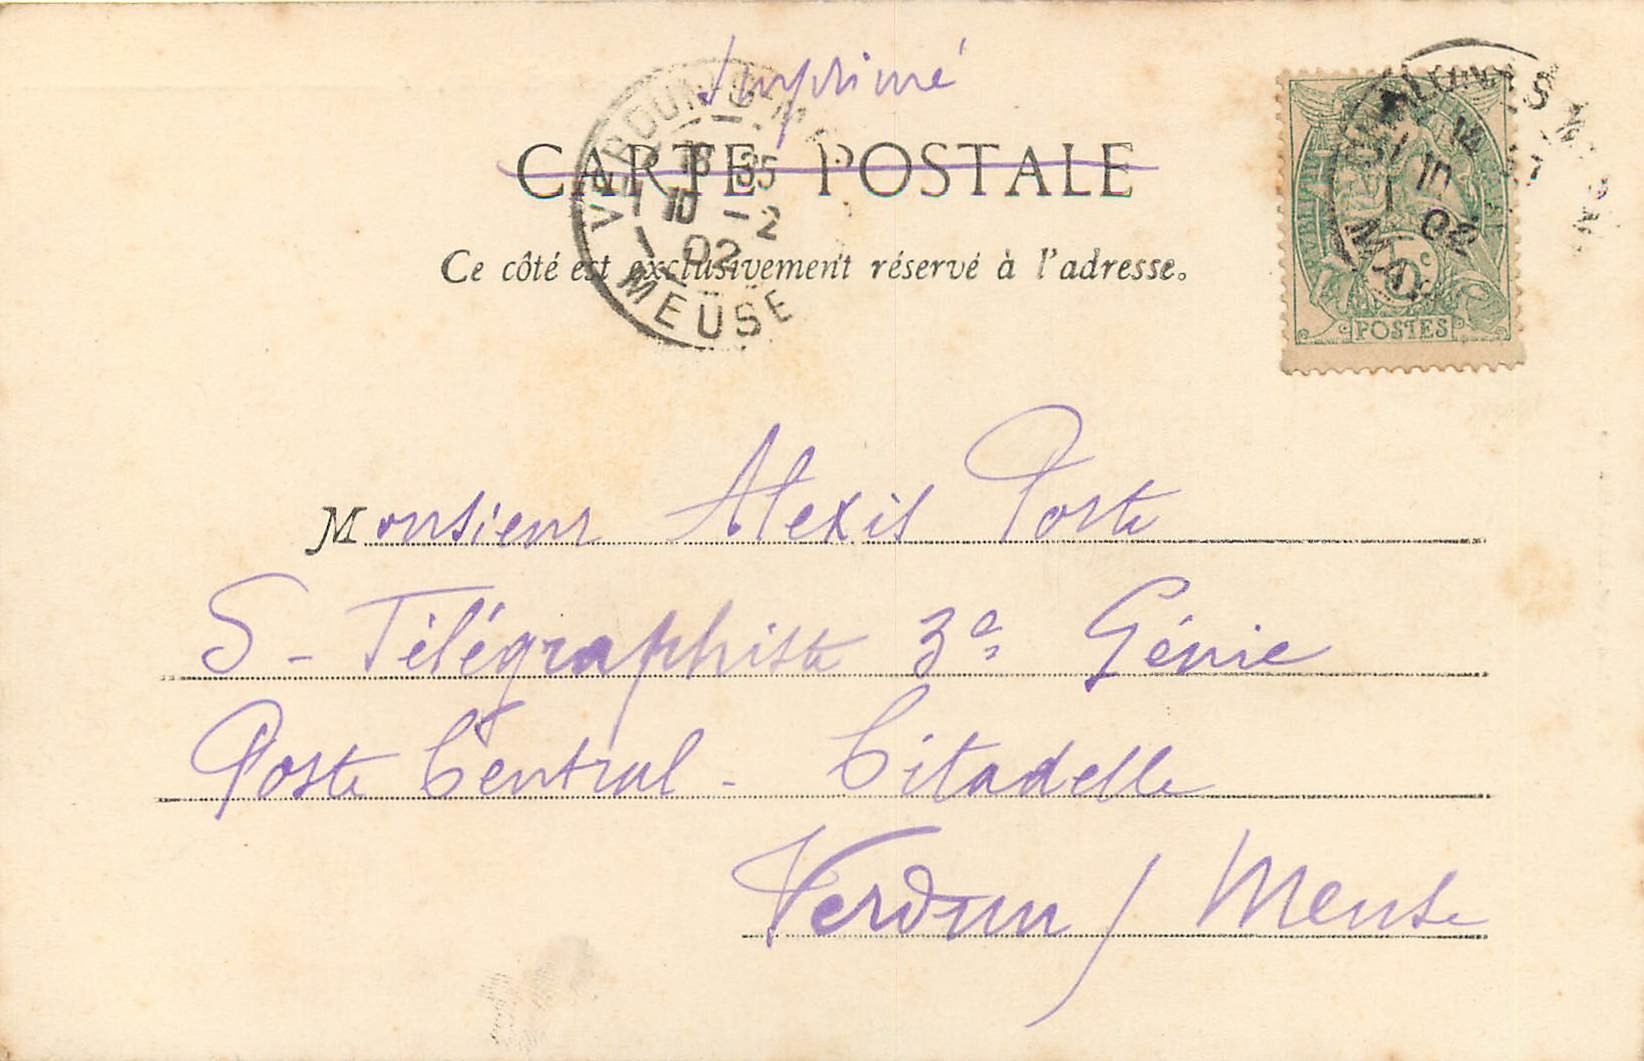 Imprimé
CARTE POSTALE
Ce côté est exclusivement réservé à l'adresse.
VERDUN-S-M
10 -2
02
MEUSE
10
02
5c
POSTES
Monsieur Alexis Poste
S- Télégraphiste 3e Génie
Poste Central - Citadelle
Verdun / Meuse